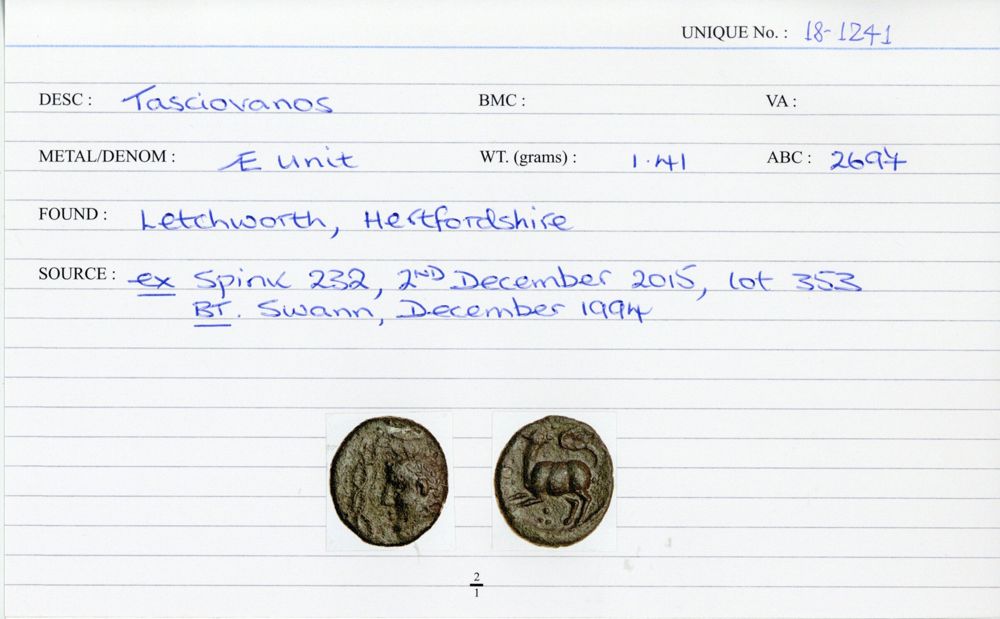 UNIQUE No. : 18-1241
DESC : Tasciovanos BMC : VA :
METAL/DENOM : Æ Unit WT. (grams) : 1.41 ABC : 2697
FOUND : Letchworth, Hertfordshire
SOURCE : ex Spink 232, 2ND December 2015, lot 353
BT. Swann, December 1994
2
1